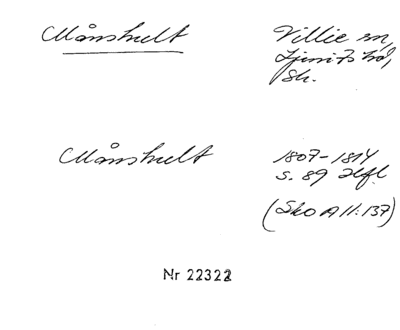 Månshult
Villie sn,
Ljunits hd,
Sk.
Månshult
1807-1814
s. 89 Hfl
(Sko A II:137)
Nr 22322